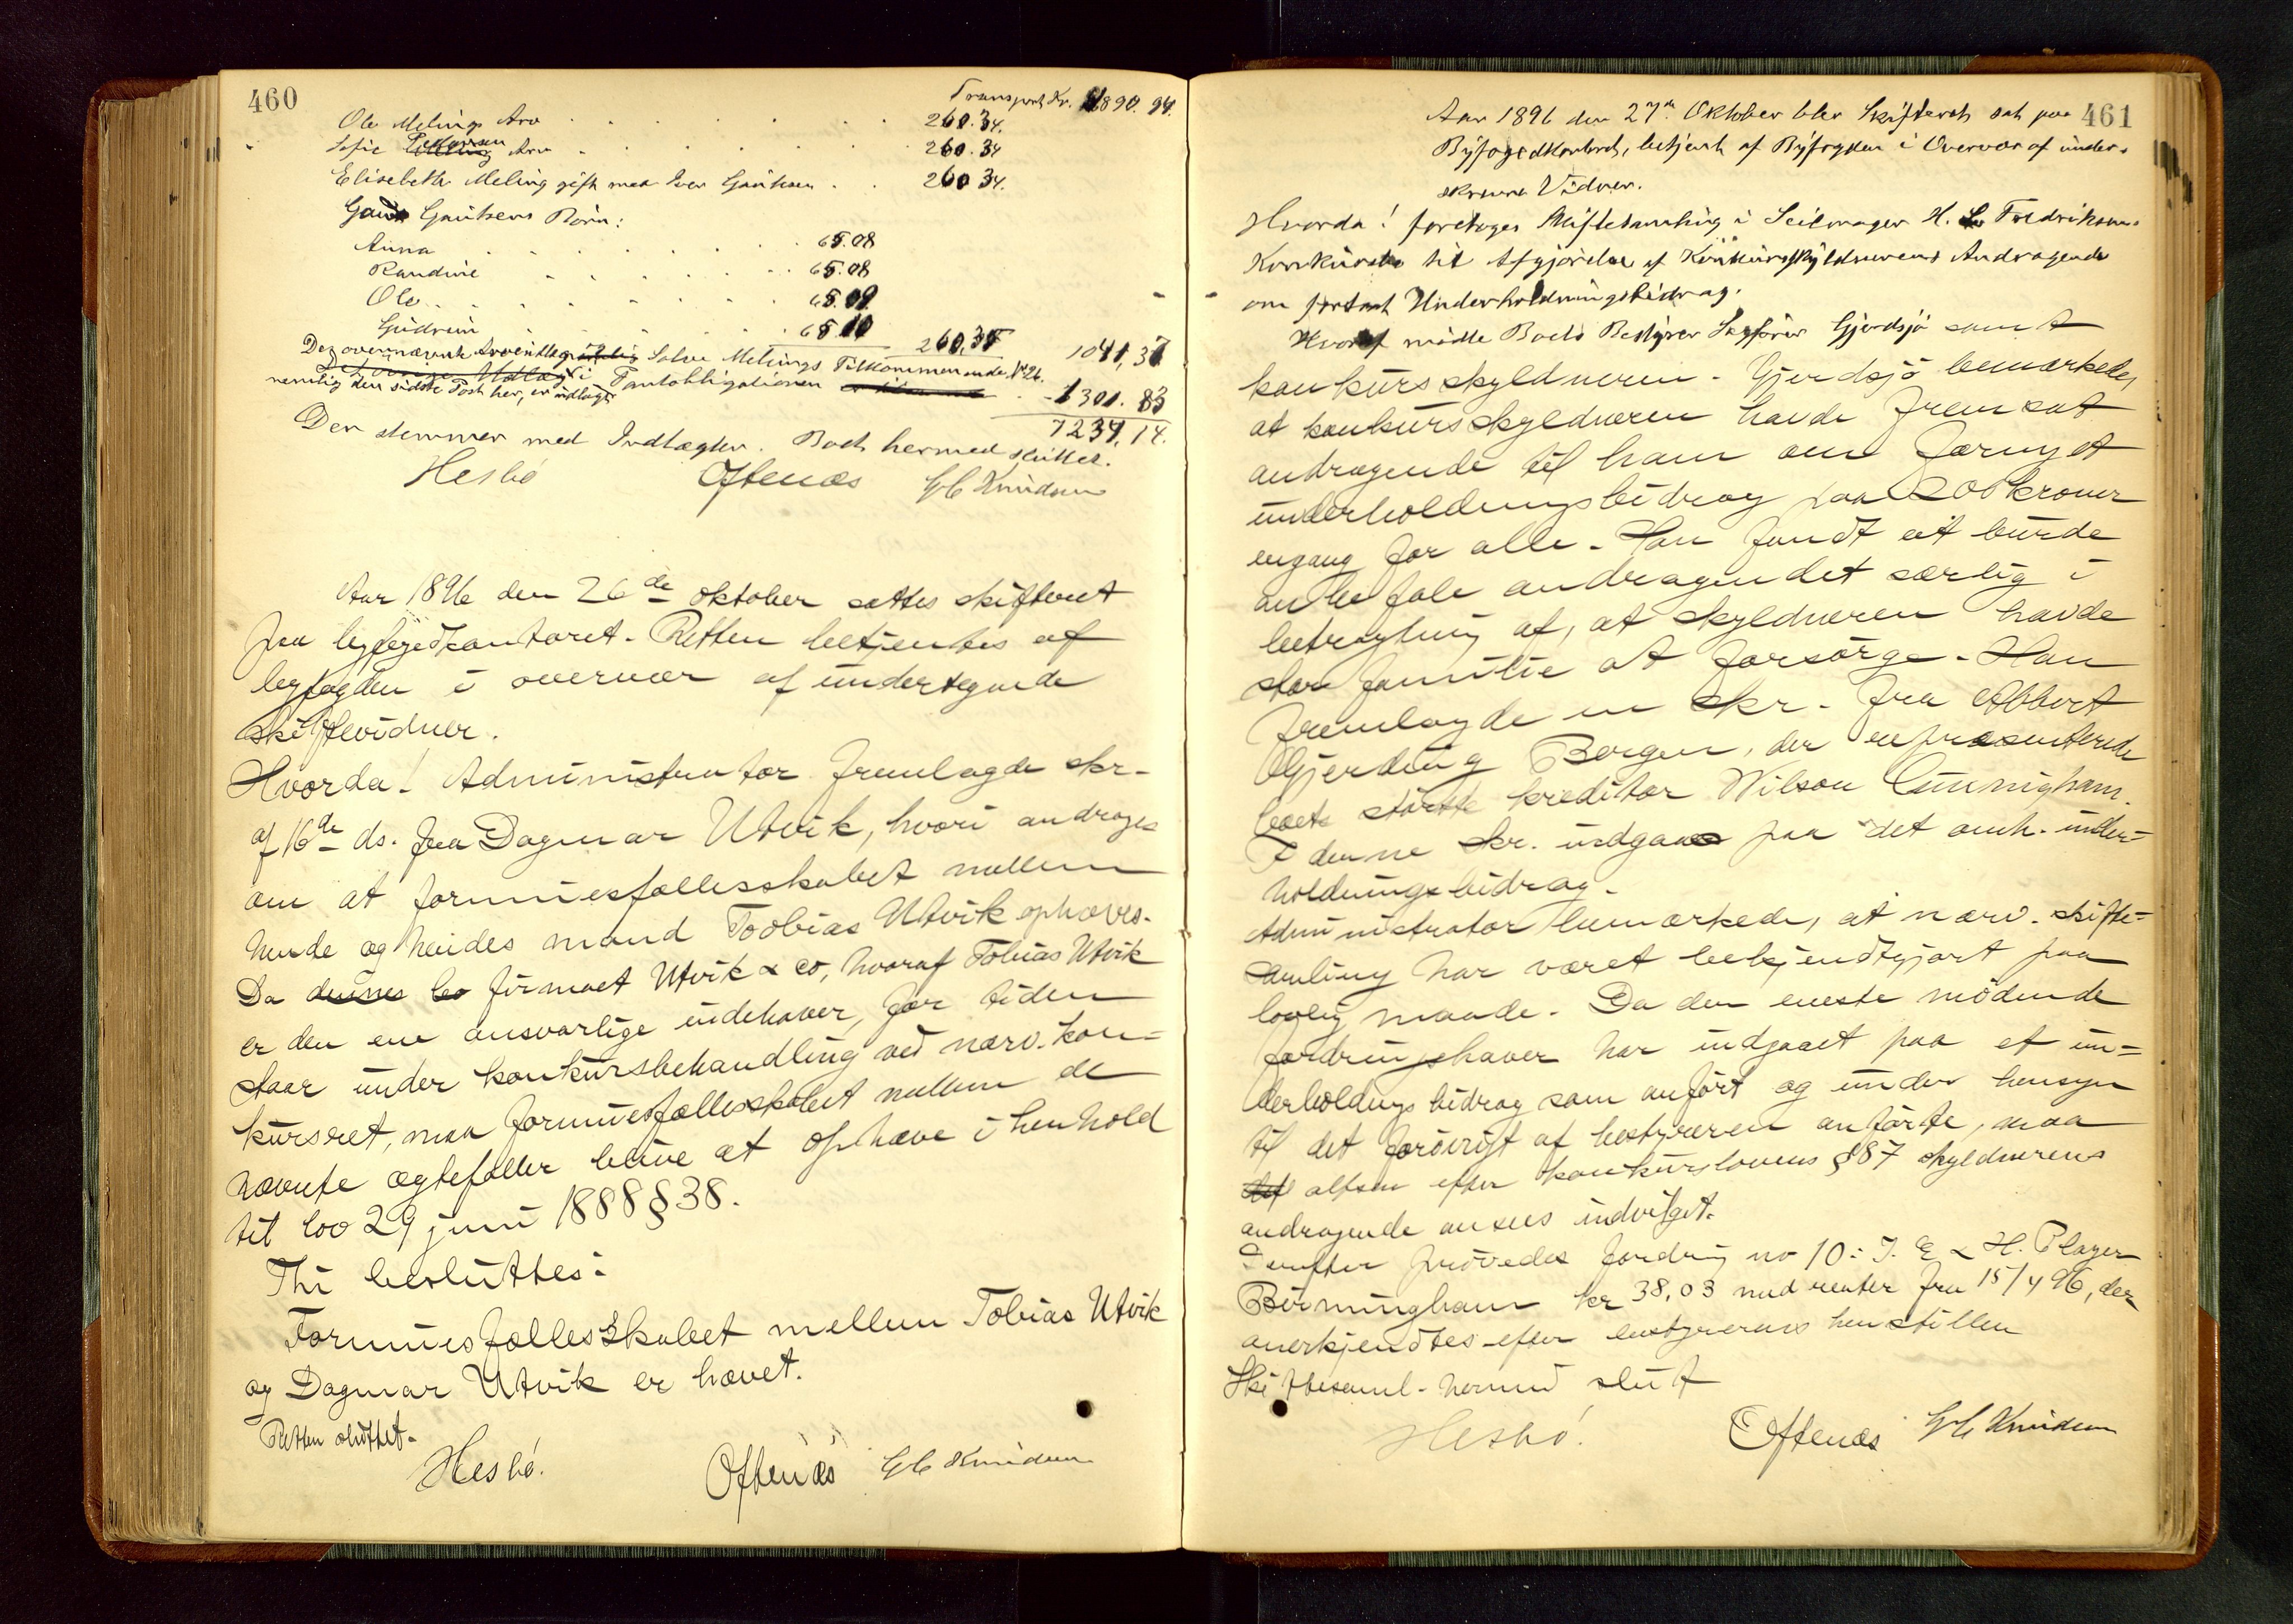 460
Transport Kr. 4890. 94.
Ole Melings Arv 260.34.
Sofie Pedersen Arv 260.34
Elisebeth Meling gift med Iver Gautesen 260 34.
Gautesens Børn:
Anna 65.08
Randine 65.08
Ole 65.09
Gudrun 65.10 260,35 1041,37
Den ovennævnte Arveudlæg Salve Melings Tilkommende,
i Pantobligationen 1301.83
nemlig den sidste Post her, er udlagt
7234,14.
Den stemmer med Indtægten. Boet hermed sluttet.
Hesbö Oftenæs G C Knudsen
Aar 1896 den 26de oktober sattes skifteret
paa byfogedkontoret. Retten betjentes af
byfogden i overvær af undertegnede
skiftevidner.
Hvorda! Administrator fremlagde skr.
af 16de ds. fra Dagmar Utvik, hvori andrages
om at formuesfællesskabet mellem
hende og hendes mand Toobias Utvik ophæves.
Da dennes bo firmaet Utvik & co, hvoraf Tobias Utvik
er den ene ansvarlige indehaver, for tiden
staar under konkursbehandling ved nærv. kon=
kursret, maa formuesfællesskabet mellem de
nævnte ægtefæller blive at ophæve i henhold
til lov 29 juni 1888 § 38.
Thi besluttes:
Formuesfællesskabet mellem Tobias Utvik
og Dagmar Utvik er hævet.
Retten sluttet.
Hesbö. Oftenæs G C Knudsen
461
Aar 1896 den 27de Oktober blev Skifteret sat paa
Byfogedkontoret, betjent af Byfogden i Overvær af under-
skrevne Vidner.
Hvorda! foretoges Skiftesamling i Seilmager H. L. Fredriksens
Konkursbo til Afgjörelse af Konkursskyldnerens Andragende
om fortsat Underholdningsbidrag.
Hvoraf mödte Boets Bestyrer Sagförer Gjerdsjö samt
konkursskyldneren. Gjerdsjö bemærkede,
at konkursskyldneren havde fremsat
andragende til ham om fornyet
underholdningsbidrag paa 200 kroner
engang for alle. Han fandt at burde
anbefale andragendet særlig i
betragtning af, at skyldneren havde
stor familie at forsörge. Han
fremlagde en skr. fra Abbert
Gjerding Bergen, der repræsenterede
boets störste kreditor Wilson Cunnigham.
I denne skr. indgaaes paa det omh. under=
holdningsbidrag.
Administrator bemærkede, at nærv. skifte=
samling har været bekjendtgjort paa
lovlig maade. Da den eneste mödende
fordringshaver har indgaaet paa et un=
derholdings bidrag som anfört og under hensyn
til det forövrigt af bestyreren anförte, maa
altsaa efter konkurslovens § 87 skyldnerens
andragende ansees indvilget.
Derefter prövedes fordring no 10: J. E & H. Player
Birmingham kr 38,03 med renter fra 15/4 96, der
anerkjendtes efter bestyrerens henstillen
Skiftesaml. hermed slut
Hesbö. Oftenæs G C Knudsen